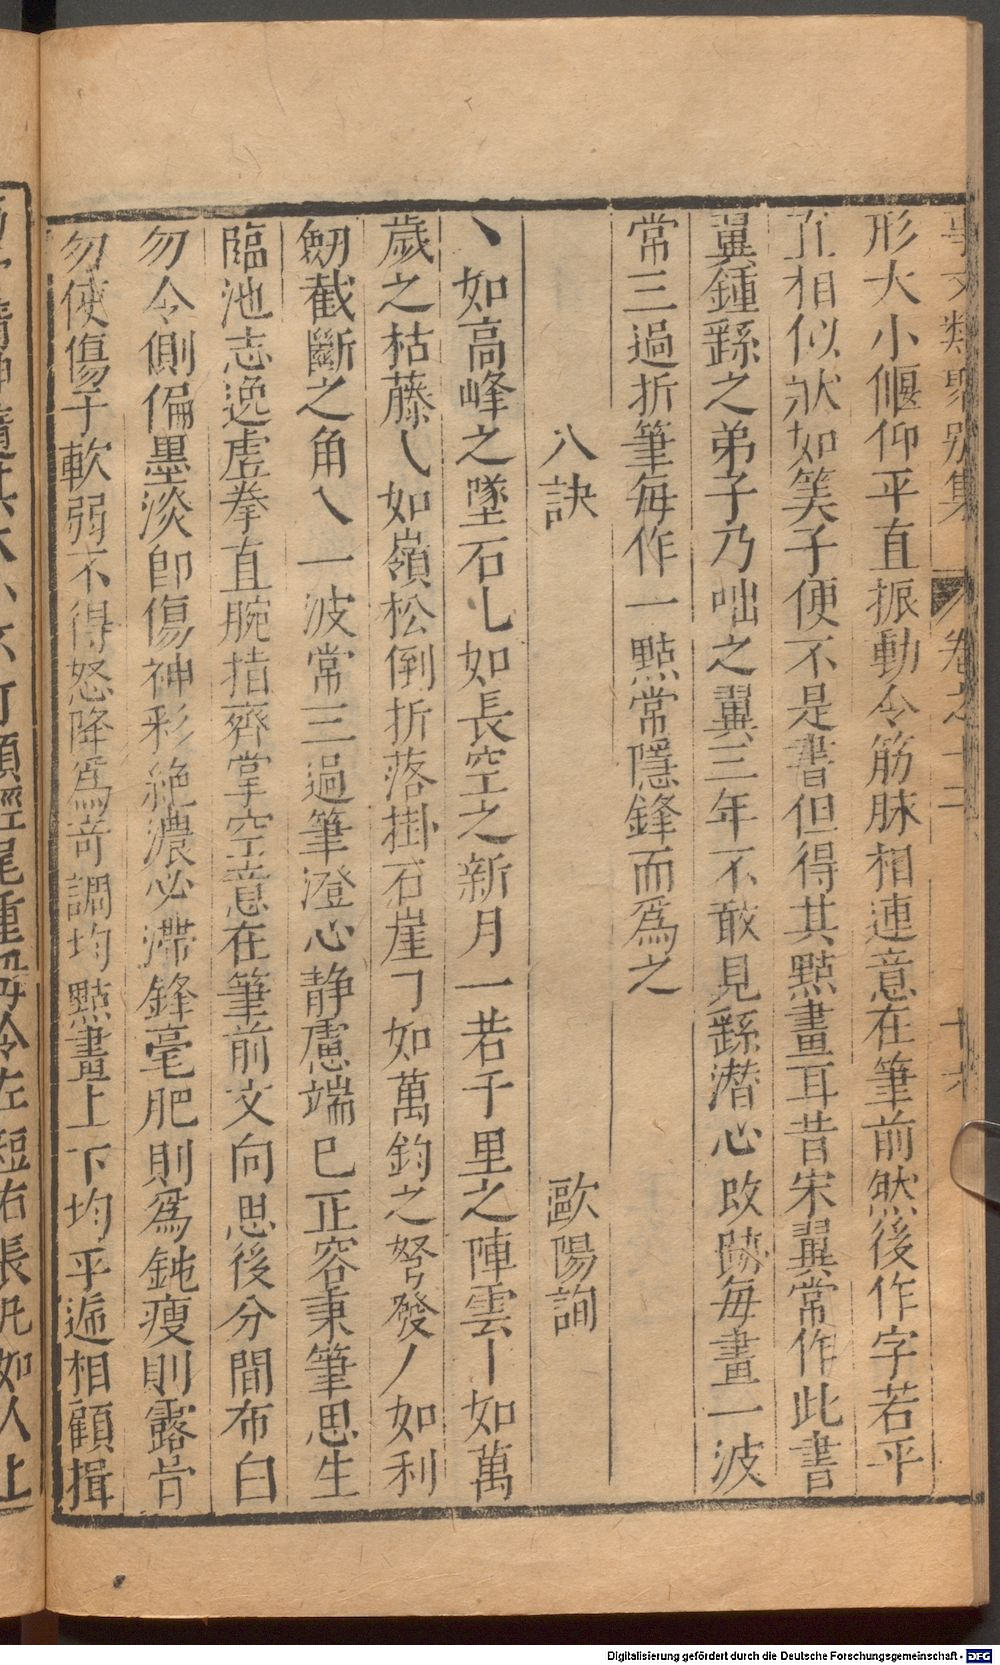 事文類聚別集 卷之十二
形大小偃仰平直振動令筋脉相連意在筆前然後作字若平
直相似狀如筭子便不是書但得其點畫耳昔宋翼常作此書
翼鍾繇之弟子乃咄之翼三年不敢見繇潛心改跡每畫一波
常三過折筆每作一點常隱鋒而爲之
八訣 歐陽詢
丶如高峰之墜石乚如長空之新月一若千里之陣雲丨如萬
歲之枯藤㇂如嶺松倒折落掛石崖㇆如萬鈞之弩發丿如利
劒截斷之角㇏一波常三過筆澄心静慮端已正容秉筆思生
臨池志逸虚拳直腕指齊掌空意在筆前文向思後分間布白
勿令側偏墨淡即傷神彩絶濃必滯鋒毫肥則爲鈍瘦則露骨
勿使傷于軟弱不得怒降爲竒調均點畫上下均平遞相顧揖
Digitalisierung gefördert durch die Deutsche Forschungsgemeinschaft - DFG